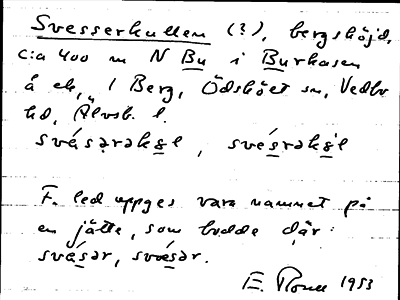 Svesserkullen (?), bergshöjd,
c:a 400 m N Bu i Burhasen
å ek, 1 Berg, Ödsköet sn, Vedbo
hd, Älvsb. l.
svásərək
F. led uppges vara namnet på
en jätte, som bodde där:
svásər, svæsər.
E. 1953